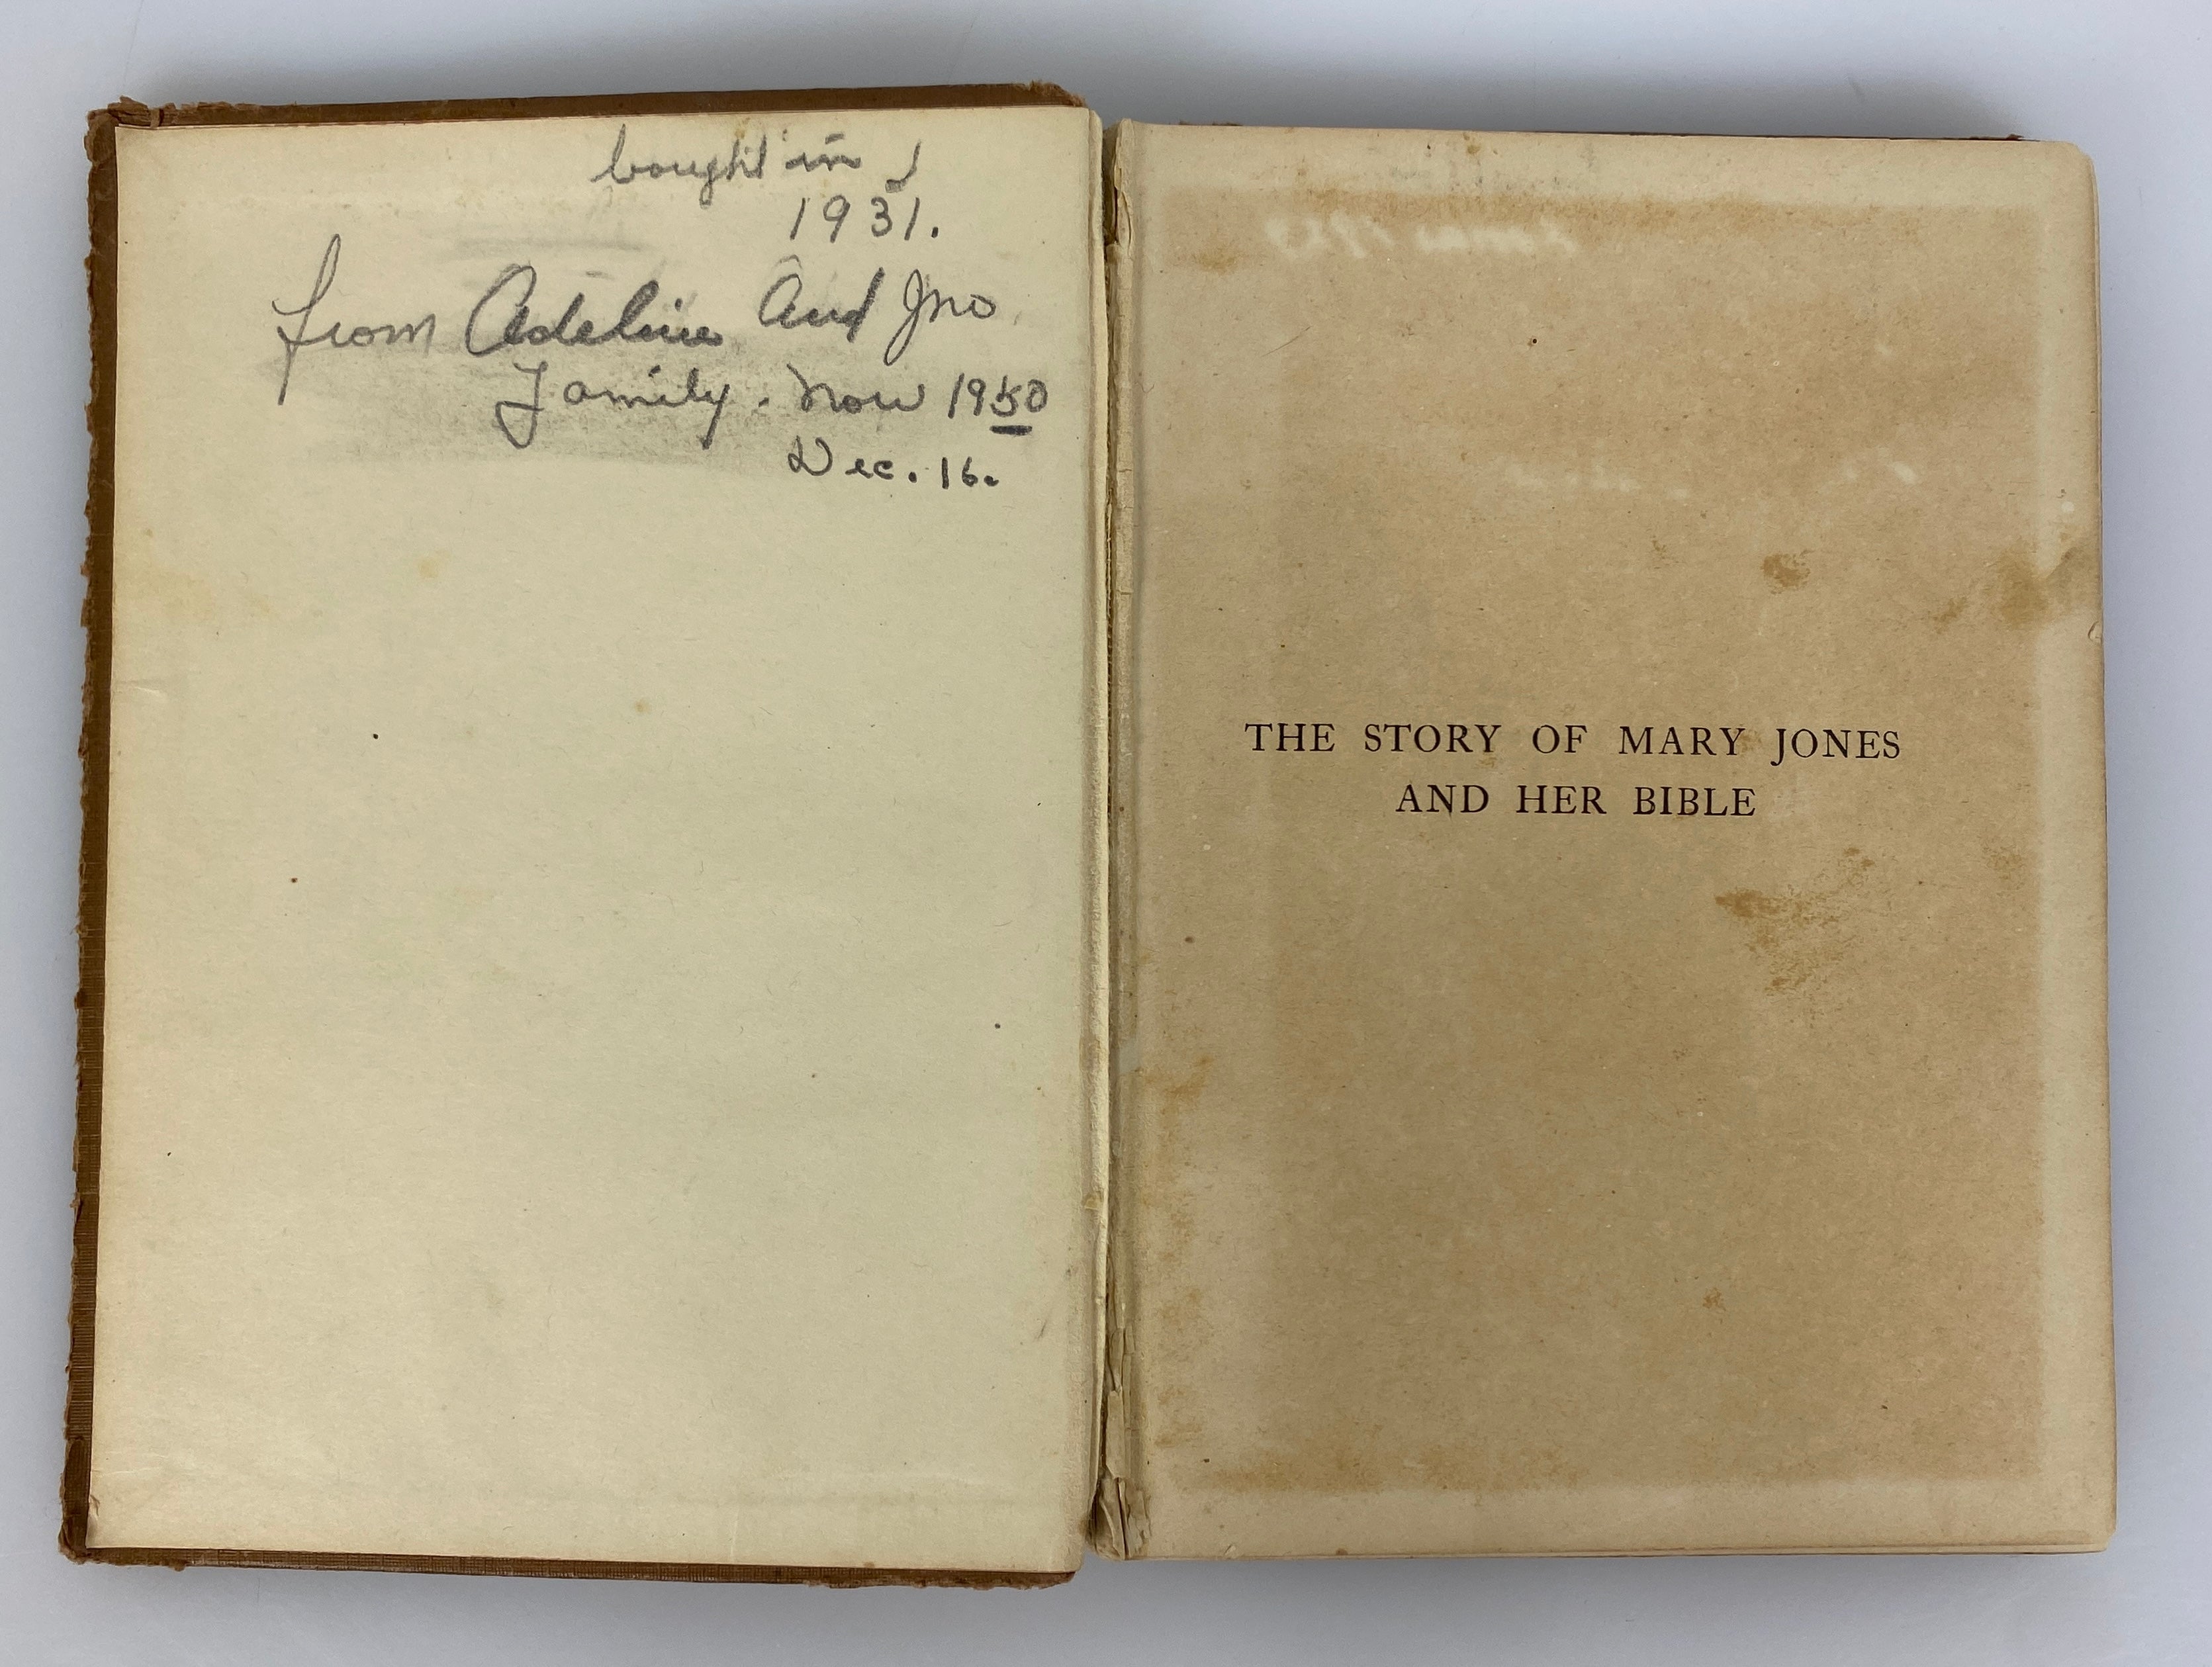 bought in
1931.
from Adeline And Jno
Family. Now 1950
Dec. 16.
THE STORY OF MARY JONES
AND HER BIBLE